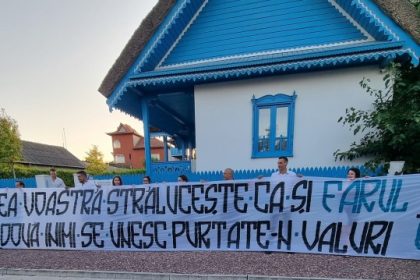 EA VOASTRA STRALUCEȘTE CA ȘI FARUL
DOVA INIMI SE UNESC PURTATE-N VALURI